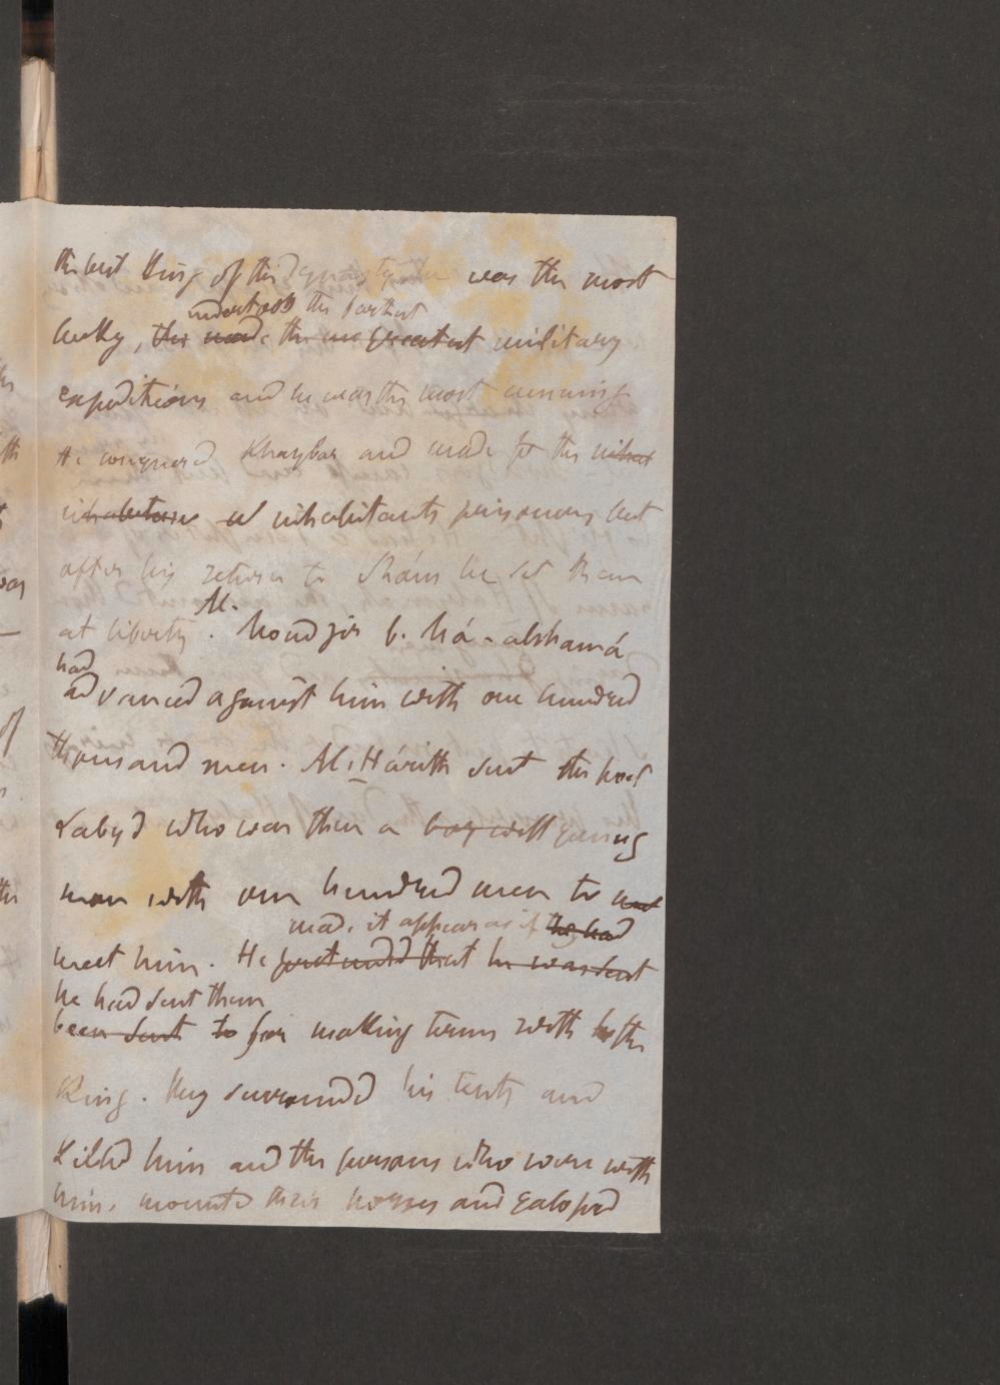 the best King of this Dynasty he was the most
undertook the farthest
lucky, the made the greatest military
expeditions and he was the most cunning
He conquered Khaybar and made the inhabi
inhabitans inhabitants prisoners but
after his return to Shám he set them
at liberty. Al. Mondzir b. Má-alshamá
had
advanced against him with one hundred
thousand men. Al-Hárith sent the poet
Labyd who was then a boy well young
man with one hundred men to
made it appear as if he had
meet him. He pretended that he was sent
he had sent them
been sent to for making terms with the
King. They surrounded his tents and
killed him and the persons who were with
him, mounted their horses and galoped